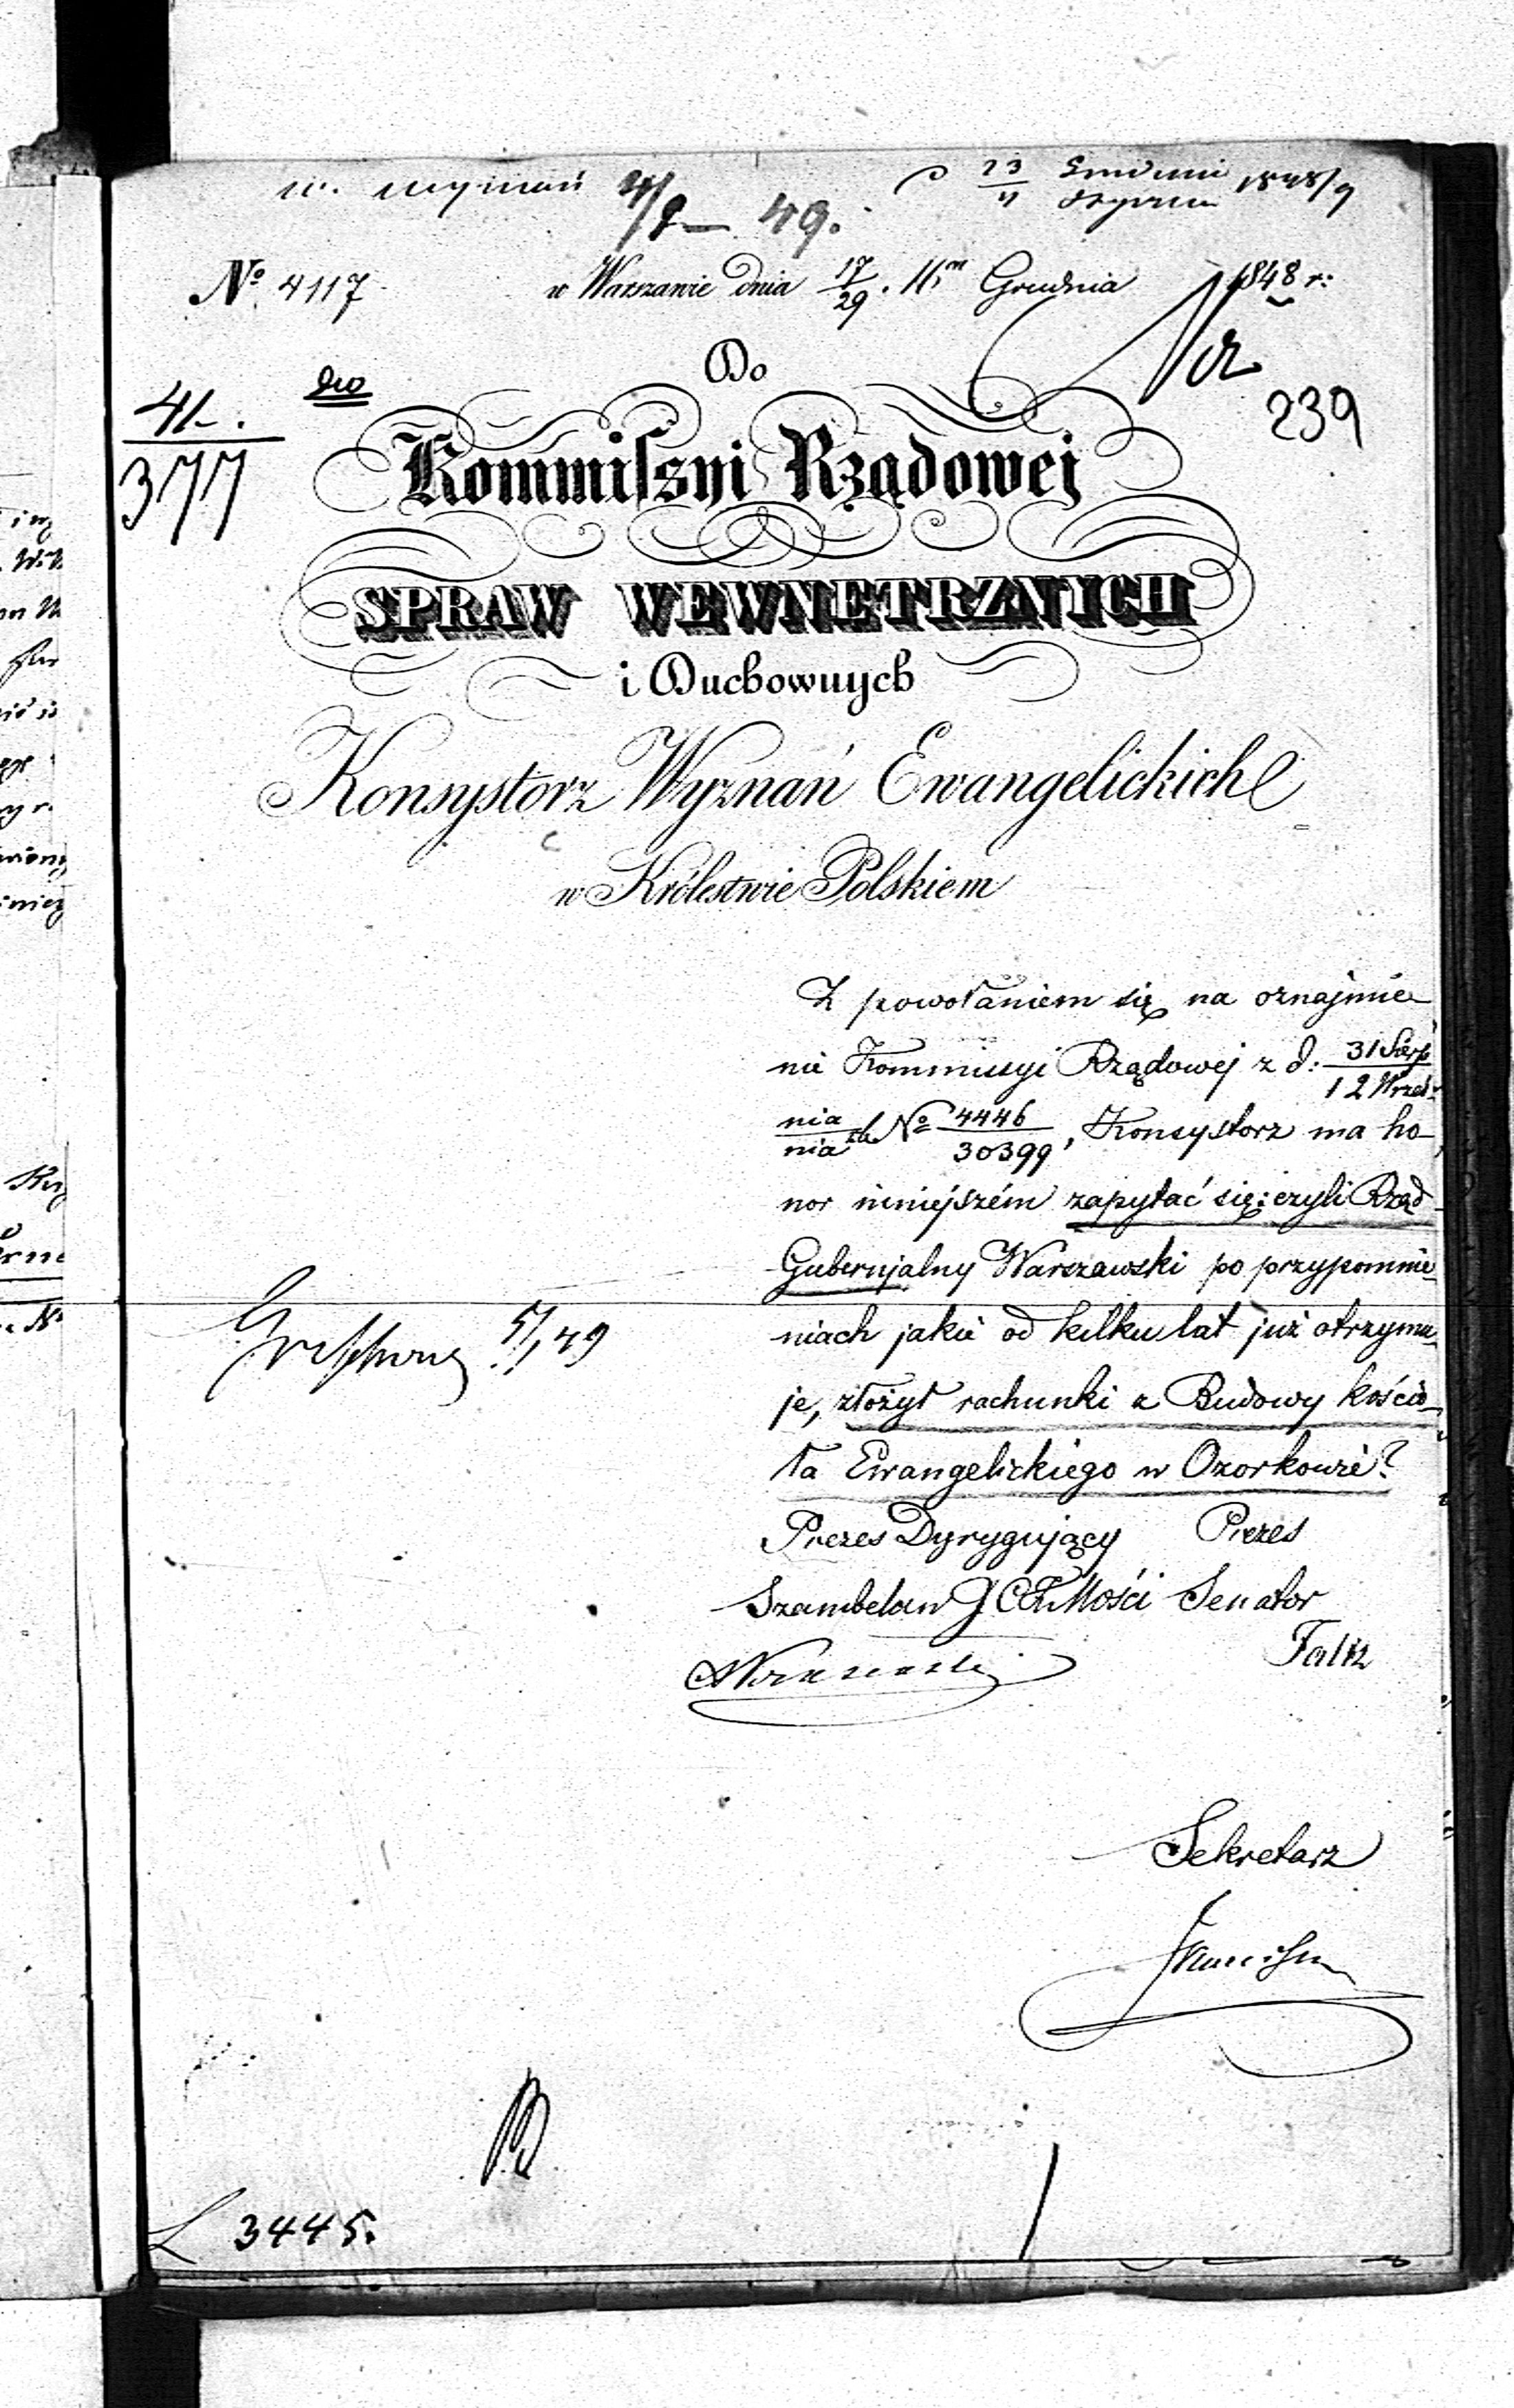 w. wyznań 4/1 49.
23 Grudnia
4 Stycznia 1848/9
No 4117
w Warszawie dnia 17/29 Grudnia 1848 r:
Do
239
41.
377
Kommissyi Rządowej
SPRAW WEWNĘTRZNYCH
i Duchownych
Konsystorz Wyznań Ewangelickich
w Królestwie Polskiem
Z powołaniem się na oznajmie-
nie Kommissyi Rządowej z d: 31 Sierp
12 Wrześ
nia
nia No 4446
30399, Konsystorz ma ho-
nor niniejszém zapytać się: czyli Rząd
Gubernjalny Warszawski po przypomnie-
niach jakie od kilku lat już otrzymu-
je, złożył rachunki z Budowy kościo-
ła Ewangelickiego w Ozorkowie?
5/1 49
Prezes Dyrygujący Prezes
Szambelan J C K Mości Senator
Faltz
Sekretarz
3445.